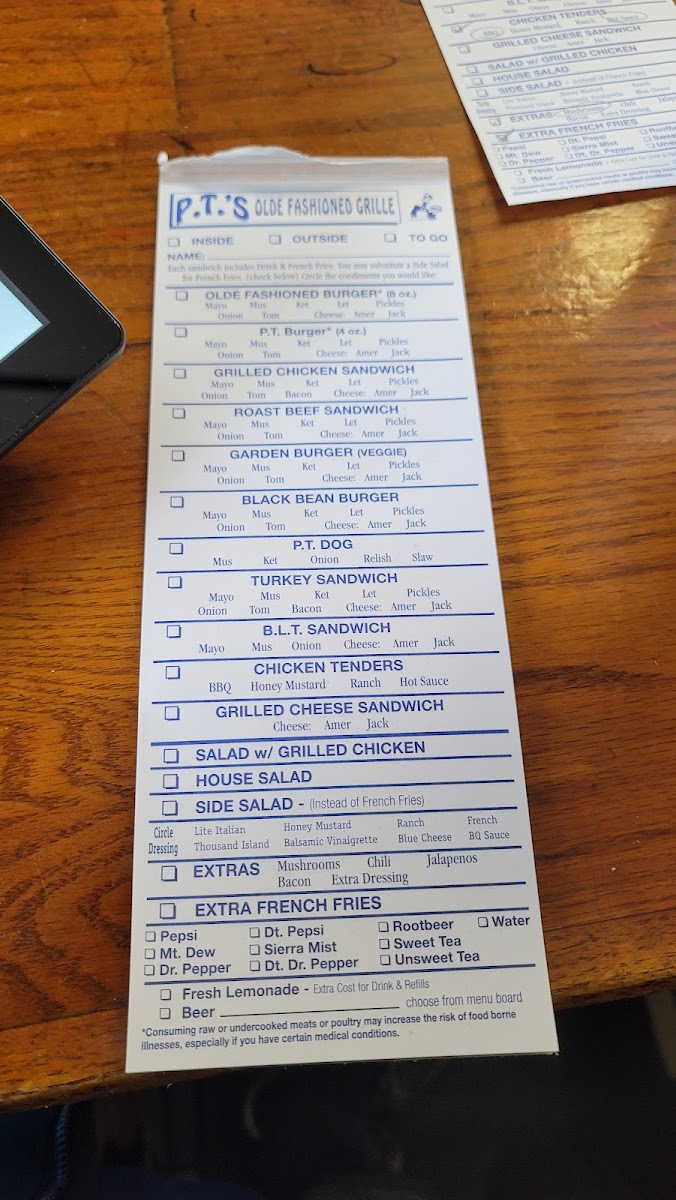 P.T.'S OLDE FASHIONED GRILLE
INSIDE OUTSIDE TO GO
NAME:
Each sandwich includes Drink & French Fries. You may substitute a Side Salad
for French Fries. (check below) Circle the condiments you would like.
OLDE FASHIONED BURGER* (8 oz.)
Mayo Mus Ket Let Pickles
Onion Tom Cheese: Amer Jack
P.T. Burger* (4 oz.)
Mayo Mus Ket Let Pickles
Onion Tom Cheese: Amer Jack
GRILLED CHICKEN SANDWICH
Mayo Mus Ket Let Pickles
Onion Tom Bacon Cheese: Amer Jack
ROAST BEEF SANDWICH
Mayo Mus Ket Let Pickles
Onion Tom Cheese: Amer Jack
GARDEN BURGER (VEGGIE)
Mayo Mus Ket Let Pickles
Onion Tom Cheese: Amer Jack
BLACK BEAN BURGER
Mayo Mus Ket Let Pickles
Onion Tom Cheese: Amer Jack
P.T. DOG
Mus Ket Onion Relish Slaw
TURKEY SANDWICH
Mayo Mus Ket Let Pickles
Onion Tom Bacon Cheese: Amer Jack
B.L.T. SANDWICH
Mayo Mus Onion Cheese: Amer Jack
CHICKEN TENDERS
BBQ Honey Mustard Ranch Hot Sauce
GRILLED CHEESE SANDWICH
Cheese: Amer Jack
SALAD w/ GRILLED CHICKEN
HOUSE SALAD
SIDE SALAD - (Instead of French Fries)
Circle Lite Italian Honey Mustard Ranch French
Dressing Thousand Island Balsamic Vinaigrette Blue Cheese BQ Sauce
EXTRAS Mushrooms Chili Jalapenos
Bacon Extra Dressing
EXTRA FRENCH FRIES
Pepsi Dt. Pepsi Rootbeer Water
Mt. Dew Sierra Mist Sweet Tea
Dr. Pepper Dt. Dr. Pepper Unsweet Tea
Fresh Lemonade - Extra Cost for Drink & Refills
Beer choose from menu board
*Consuming raw or undercooked meats or poultry may increase the risk of food borne
illnesses, especially if you have certain medical conditions.
CHICKEN TENDERS
BBQ Honey Mustard Ranch Hot Sauce
GRILLED CHEESE SANDWICH
Cheese: Amer Jack
SALAD w/ GRILLED CHICKEN
HOUSE SALAD
SIDE SALAD - (Instead of French Fries)
Lite Italian Honey Mustard Ranch
Thousand Island Balsamic Vinaigrette Blue Cheese
EXTRAS Mushrooms Chili
Bacon Extra Dressing
EXTRA FRENCH FRIES
Pepsi Dt. Pepsi
Mt. Dew Sierra Mist
Dr. Pepper Dt. Dr. Pepper
Fresh Lemonade
Beer